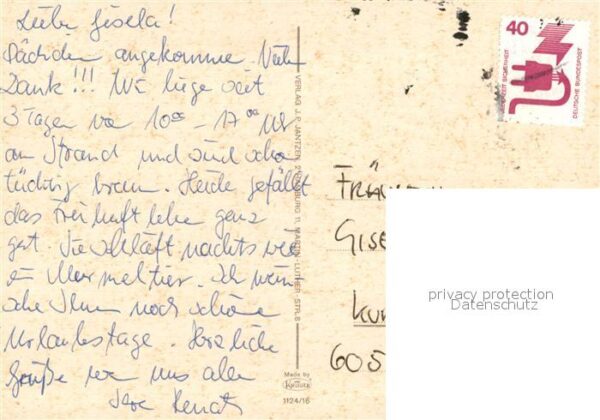 Liebe Gisela!
Päckchen angekommen. Vielen
Dank!!! Wir liegen seit
3 Tagen von 10ºº - 17ºº Uhr
am Strand und sind schon
tüchtig braun. Heide gefällt
das Freiluftleben ganz
gut. Sie schläft nachts wie
ein Murmeltier. Ich wün
sche Ihnen noch schöne
Urlaubstage. Herzliche
Grüße von uns allen
Ihre Renate
VERLAG J. P. JANTZEN, 2 HAMBURG 1, MARTIN-LUTHER-STR. 8
Made by
Krüger
1124/16
40
DEUTSCHE BUNDESPOST
FRÄU
GISE
KUR
605
privacy protection
Datenschutz